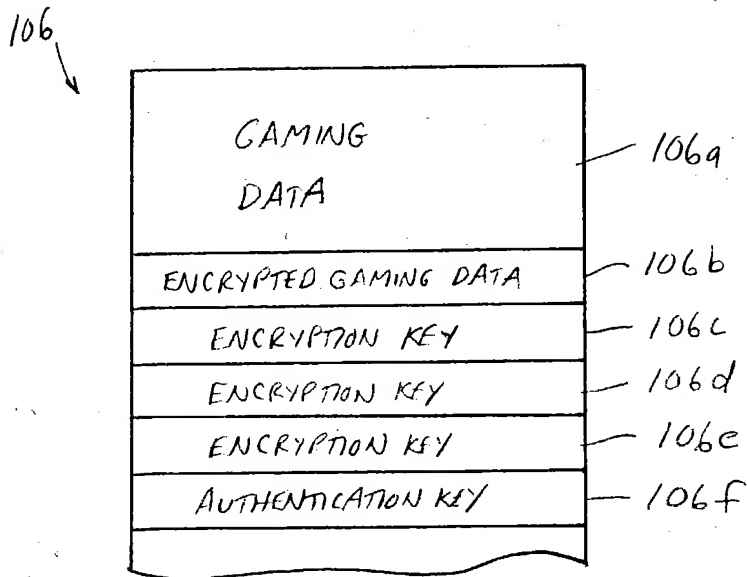 106
GAMING
DATA
106a
ENCRYPTED GAMING DATA
106b
ENCRYPTION KEY
106c
ENCRYPTION KEY
106d
ENCRYPTION KEY
106e
AUTHENTICATION KEY
106f